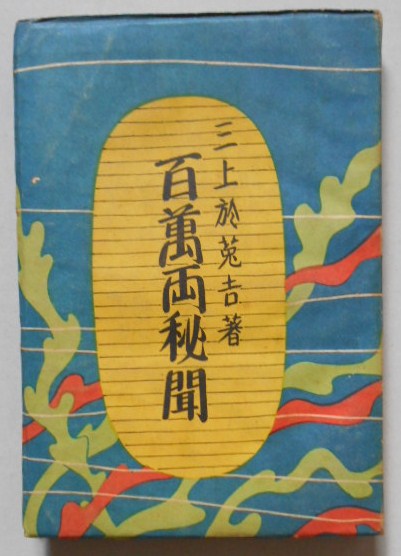 三上於菟吉著
百萬両秘聞